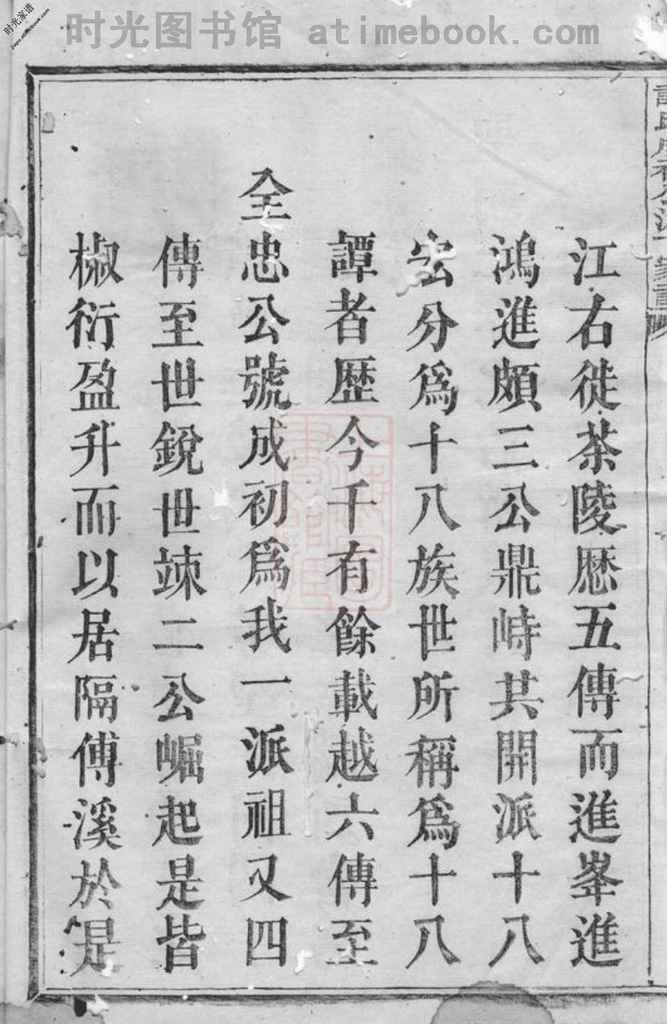 时光图书馆 atimebook.com
时光家谱
江右徙茶陵歷五傳而進峯進
鴻進頗三公鼎峙其開派十八
宏分爲十八族世所稱爲十八
譚者歷今千有餘載越六傳至
全忠公號成初爲我一派祖又四
傳至世銳世竦二公崛起是皆
椒衍盈升而以居隔傅溪於是